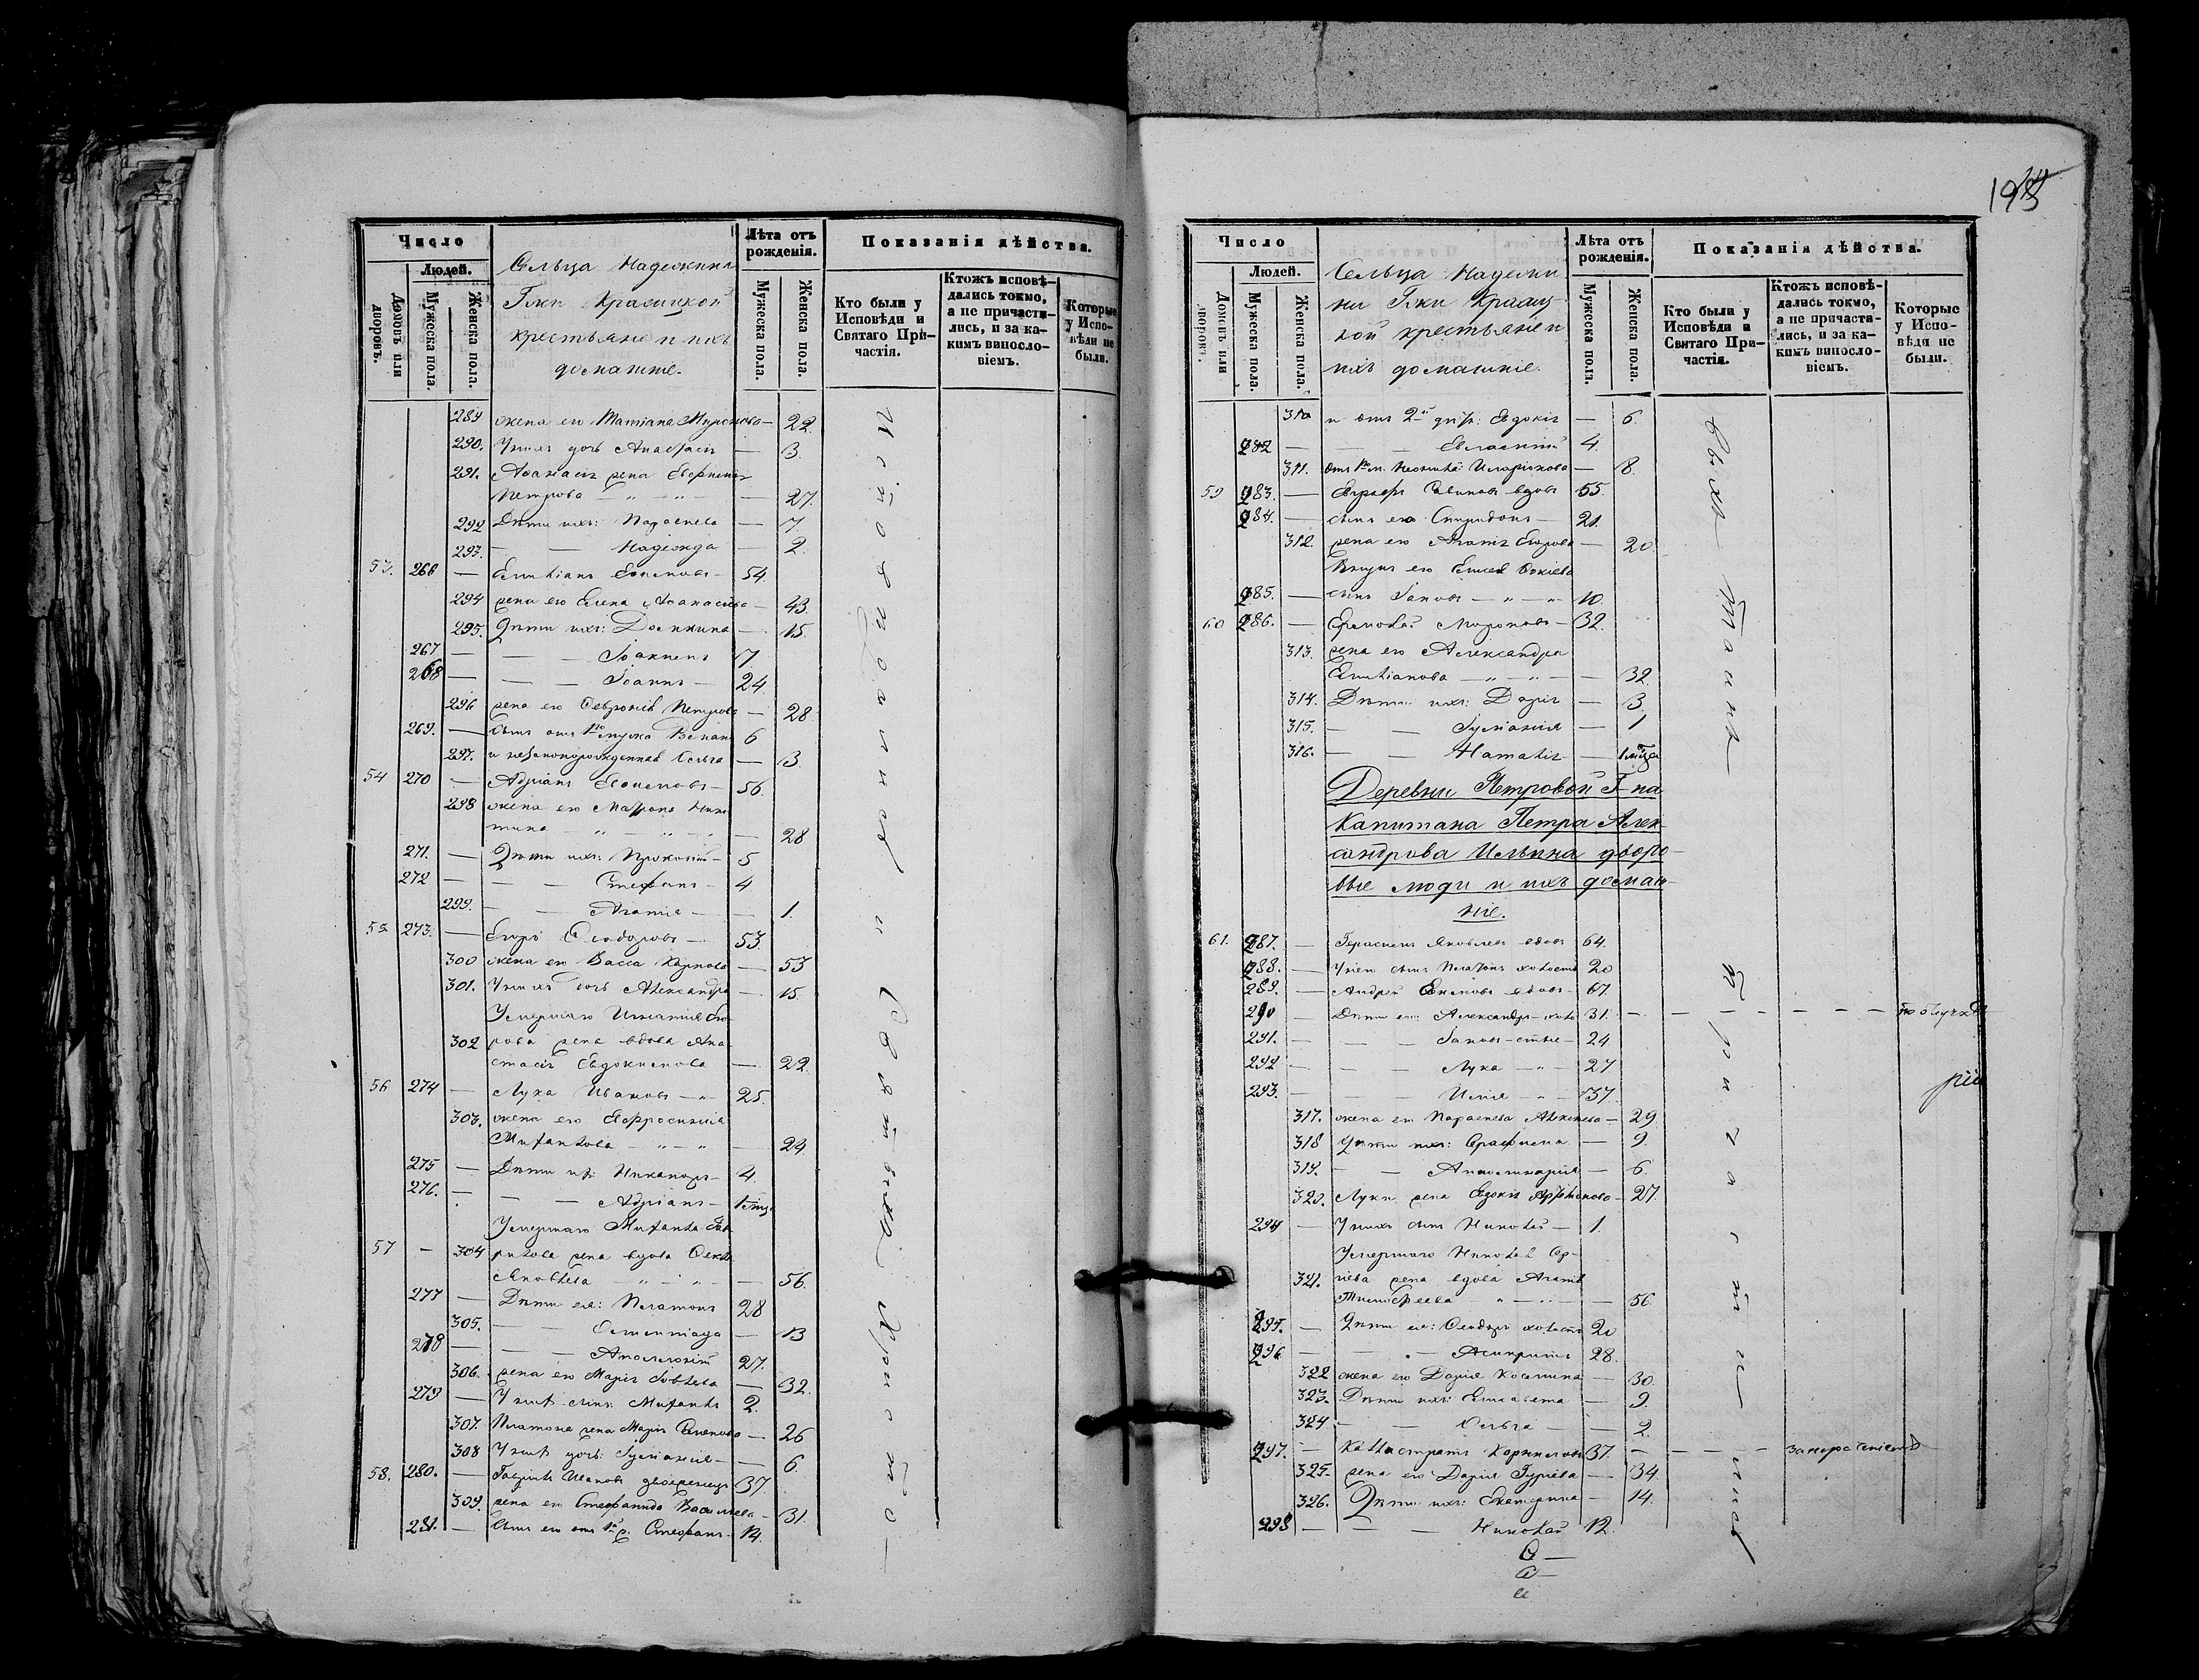 Число
Людей.
Домовъ или дворовъ.
Мужеска пола.
Женска пола.
Сельца Надежкина
Гжи Красицкой
крестьяне и ихъ
домашніе.
Лѣта отъ рожденія.
Мужеска пола.
Женска пола.
Показанія дѣйства.
Кто были у Исповѣди и Святаго Причастія.
Ктожъ исповѣдались токмо, а не причастились, и за какимъ винословіемъ.
Которые у Исповѣди не были.
289 жена его Татіана Миронова — 22.
290. У нихъ дочь Анастасія — 3.
291. Аѳанасія жена Евгенія
Петрова — 27.
292 Дѣти ихъ: Параскева — 7
293. — — Надежда — 2.
53. 266 — Емиліанъ Евѳимовъ — 54
294 жена его Елена Аѳанасіева — 43.
295. Дѣти ихъ: Домникія — 15.
267 — — — Іоакимъ 7.
268 — — — Іоаннъ — 24
296 жена его Ѳевронія Петрова — 28.
269. — Сынъ отъ 1го мужа 6
297. и незаконорожденная Ольга — 3.
54 270 — Адріанъ Евѳимовъ — 56.
298 жена его Матрона Ники
тина — 28
271. — Дѣти ихъ: Прокопій — 5
272 — — — Стефанъ — 4
299. — — Агаѳія — 1.
55 273. — Егоръ Ѳеодоровъ — 53.
300 жена его Васса Карпова — 53
301. У нихъ дочь Александра — 15.
Умершаго Игнатія Его
302 рова жена вдова Ана
стасія Евдокимова — 22.
56 274 — Лука Ивановъ — 25.
303. жена его Евфросинія
Михайлова — 24
275 — Дѣти ихъ: Никаноръ — 4.
276. — — — Адріанъ —
Умершаго Михаила Гав
57 — 304 рилова жена вдова Ѳекла
Яковлева — 56.
277 — Дѣти ея: Платонъ 28
305. — — Олимпіада — 13
278 — — — Аполлоній 27.
306. жена его Марія Іовлева — 32.
279 — У нихъ сынъ Михаилъ 2.
307. Платона жена Марія Семенова — 26
308 У нихъ дочь: Іуліанія — 6.
58. 280. — Гавріилъ Ивановъ двоеженецъ 37
309. жена его Стефанида Васильева — 31.
281. — Сынъ его отъ 1й ж. Стефанъ — 14.
Исповѣдались и Святыхъ Христо —
193
Число
Людей.
Домовъ или дворовъ.
Мужеска пола.
Женска пола.
Сельца Надежки
ни Гжи Красиц
кой крестьяне и
ихъ домашніе.
Лѣта отъ рожденія.
Мужеска пола.
Женска пола.
Показанія дѣйства.
Кто были у Исповѣди и Святаго Причастія.
Ктожъ исповѣдались токмо, а не причастились, и за какимъ винословіемъ.
Которые у Исповѣди не были.
310 и отъ 2й Евдокія — 6.
282 — — — Евлампій 4.
311. Иларіонова — 8.
59 283. — Евграфъ Савиновъ вдовъ 55.
284. — сынъ его Спиридонъ — 21.
312. жена его Агаѳія Егорова — 20.
285. — сынъ Іаковъ — 10.
60 286. — Ермолай Мироновъ — 32.
313. жена его Александра
Емиліанова — 32.
314. Дѣти ихъ: Дарія — 3.
315. — — Іуліанія — 1
316. — — Наталія —
Деревни Петровой Г-на
Капитана Петра Алек-
сандрова Ильина дворо-
вые люди и ихъ домаш-
ніе.
61. 287. — Герасимъ Яковлевъ вдовъ 64.
288. — У него сынъ Платонъ холостъ 20
289. — Андрей вдовъ — 67.
290 — Дѣти его: Александръ — 31.
291. — — — Іаковъ — 24
292 — — — Лука — 27
293. — — — Илія — 37.
317. жена его Параскева Алексѣева — 29
318 Дѣти ихъ: Серафима — 9.
319. — — Аполлинарія — 6.
320. Луки жена Евдокія — 27.
294 — У нихъ сынъ Николай — 1.
Умершаго Николая Сер-
321. гіева жена вдова Агаѳія
Тимоѳеева — 56.
295. — Дѣти ея: Ѳеодоръ холостъ 20
296 — — Асинкритъ 28.
322 жена его Дарія Косьмина — 30.
323. Дѣти ихъ: Елисавета — 9.
324 — — Ольга — 2.
297. — Каллистратъ Корниловъ 37. — — — — за нерасченіемъ
325. жена его Дарія Гурьева — 34.
326. Дѣти ихъ: Екатерина — 14.
298 — — — Николай 12.
выхъ Таинъ причастились